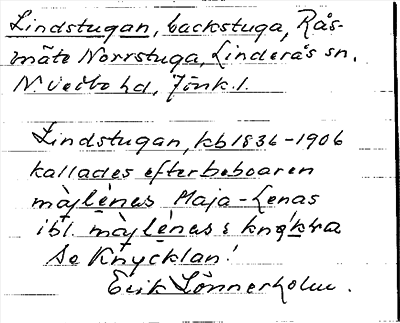 Lindstugan, backstuga, Rås-
mäte Norrstuga, Linderås sn.
N. Vedbo hd, Jönk. l.
Lindstugan, kb 1836-1906
kallades efter beboaren
màjlénas Maja-Lenas
ibl. màjlénas i
Se Knycklan!
Erik Lönnerholm.